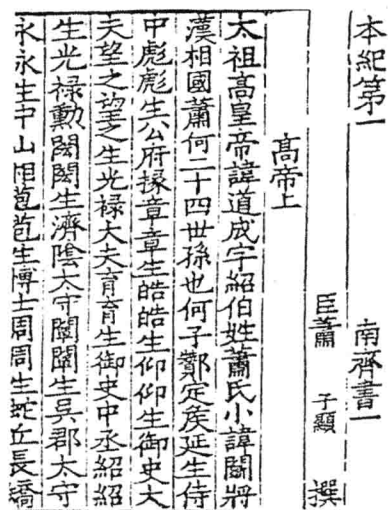 本紀第一 南齊書一
臣蕭 子顯 撰
髙帝上
太祖髙皇帝諱道成字紹伯姓蕭氏小諱鬭將
漢相國蕭何二十四世孫也何子酇定矦延生侍
中彪彪生公府掾章章生皓皓生仰仰生御史大
夫望之望之生光禄大夫育育生御史中丞紹紹
生光禄勲閎閎生濟陰太守闡闡生吳郡太守
永永生中山相苞苞生博士周周生蛇丘長矯